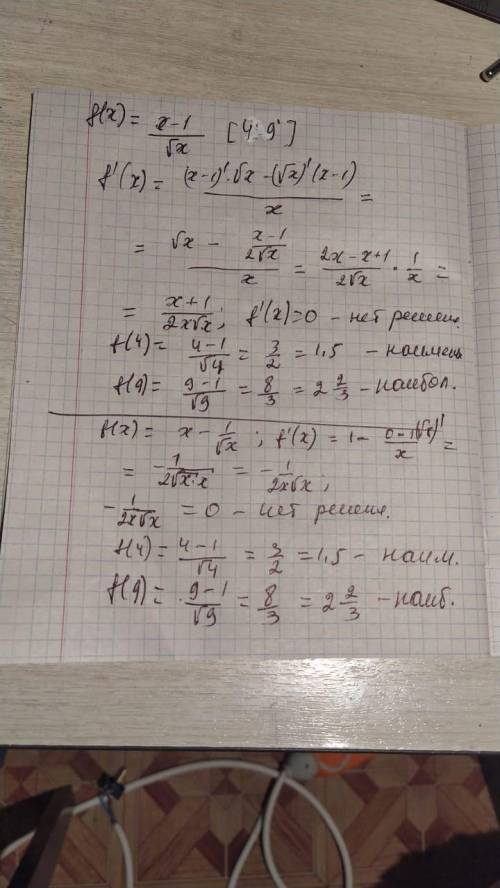 f(x) = (x-1)/√x [4; 9]
f'(x) = ((x-1)'·√x - (√x)'(x-1))/x =
= (√x - (x-1)/(2√x))/x = (2x-x+1)/(2√x) · 1/x =
= (x+1)/(2x√x); f'(x)=0 - нет решен.
f(4) = (4-1)/√4 = 3/2 = 1,5 - наимень
f(9) = (9-1)/√9 = 8/3 = 2 2/3 - наибол.
f(x) = x - 1/√x; f'(x) = 1 - (0-1(√x)')/x =
= -1/(2√x·x) = -1/(2x√x);
-1/(2x√x) = 0 - нет решен.
f(4) = (4-1)/√4 = 3/2 = 1,5 - наим.
f(9) = (9-1)/√9 = 8/3 = 2 2/3 - наиб.